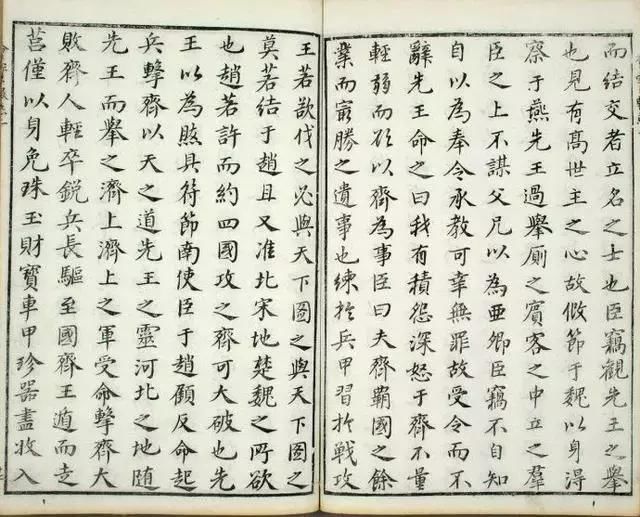 而結交者立名之士也臣竊觀先王之舉
也見有髙世主之心故假節于魏以身得
察于燕先王過舉厠之賓客之中立之羣
臣之上不謀父兄以為亞卿臣竊不自知
自以為奉令承教可幸無罪故受令而不
辭先王命之曰我有積怨深怒于齊不量
輕弱而欲以齊為事臣曰夫齊霸國之餘
業而最勝之遺事也練於兵甲習於戰攻
王若欲伐之必與天下圖之與天下圖之
莫若結于趙且又淮北宋地楚魏之所欲
也趙若許而約四國攻之齊可大破也先
王以為然具符節南使臣于趙顧反命起
兵擊齊以天之道先王之靈河北之地随
先王而舉之濟上濟上之軍受命擊齊大
敗齊人輕卒鋭兵長驅至國齊王遁而走
莒僅以身免珠玉財寶車甲珍器盡收入